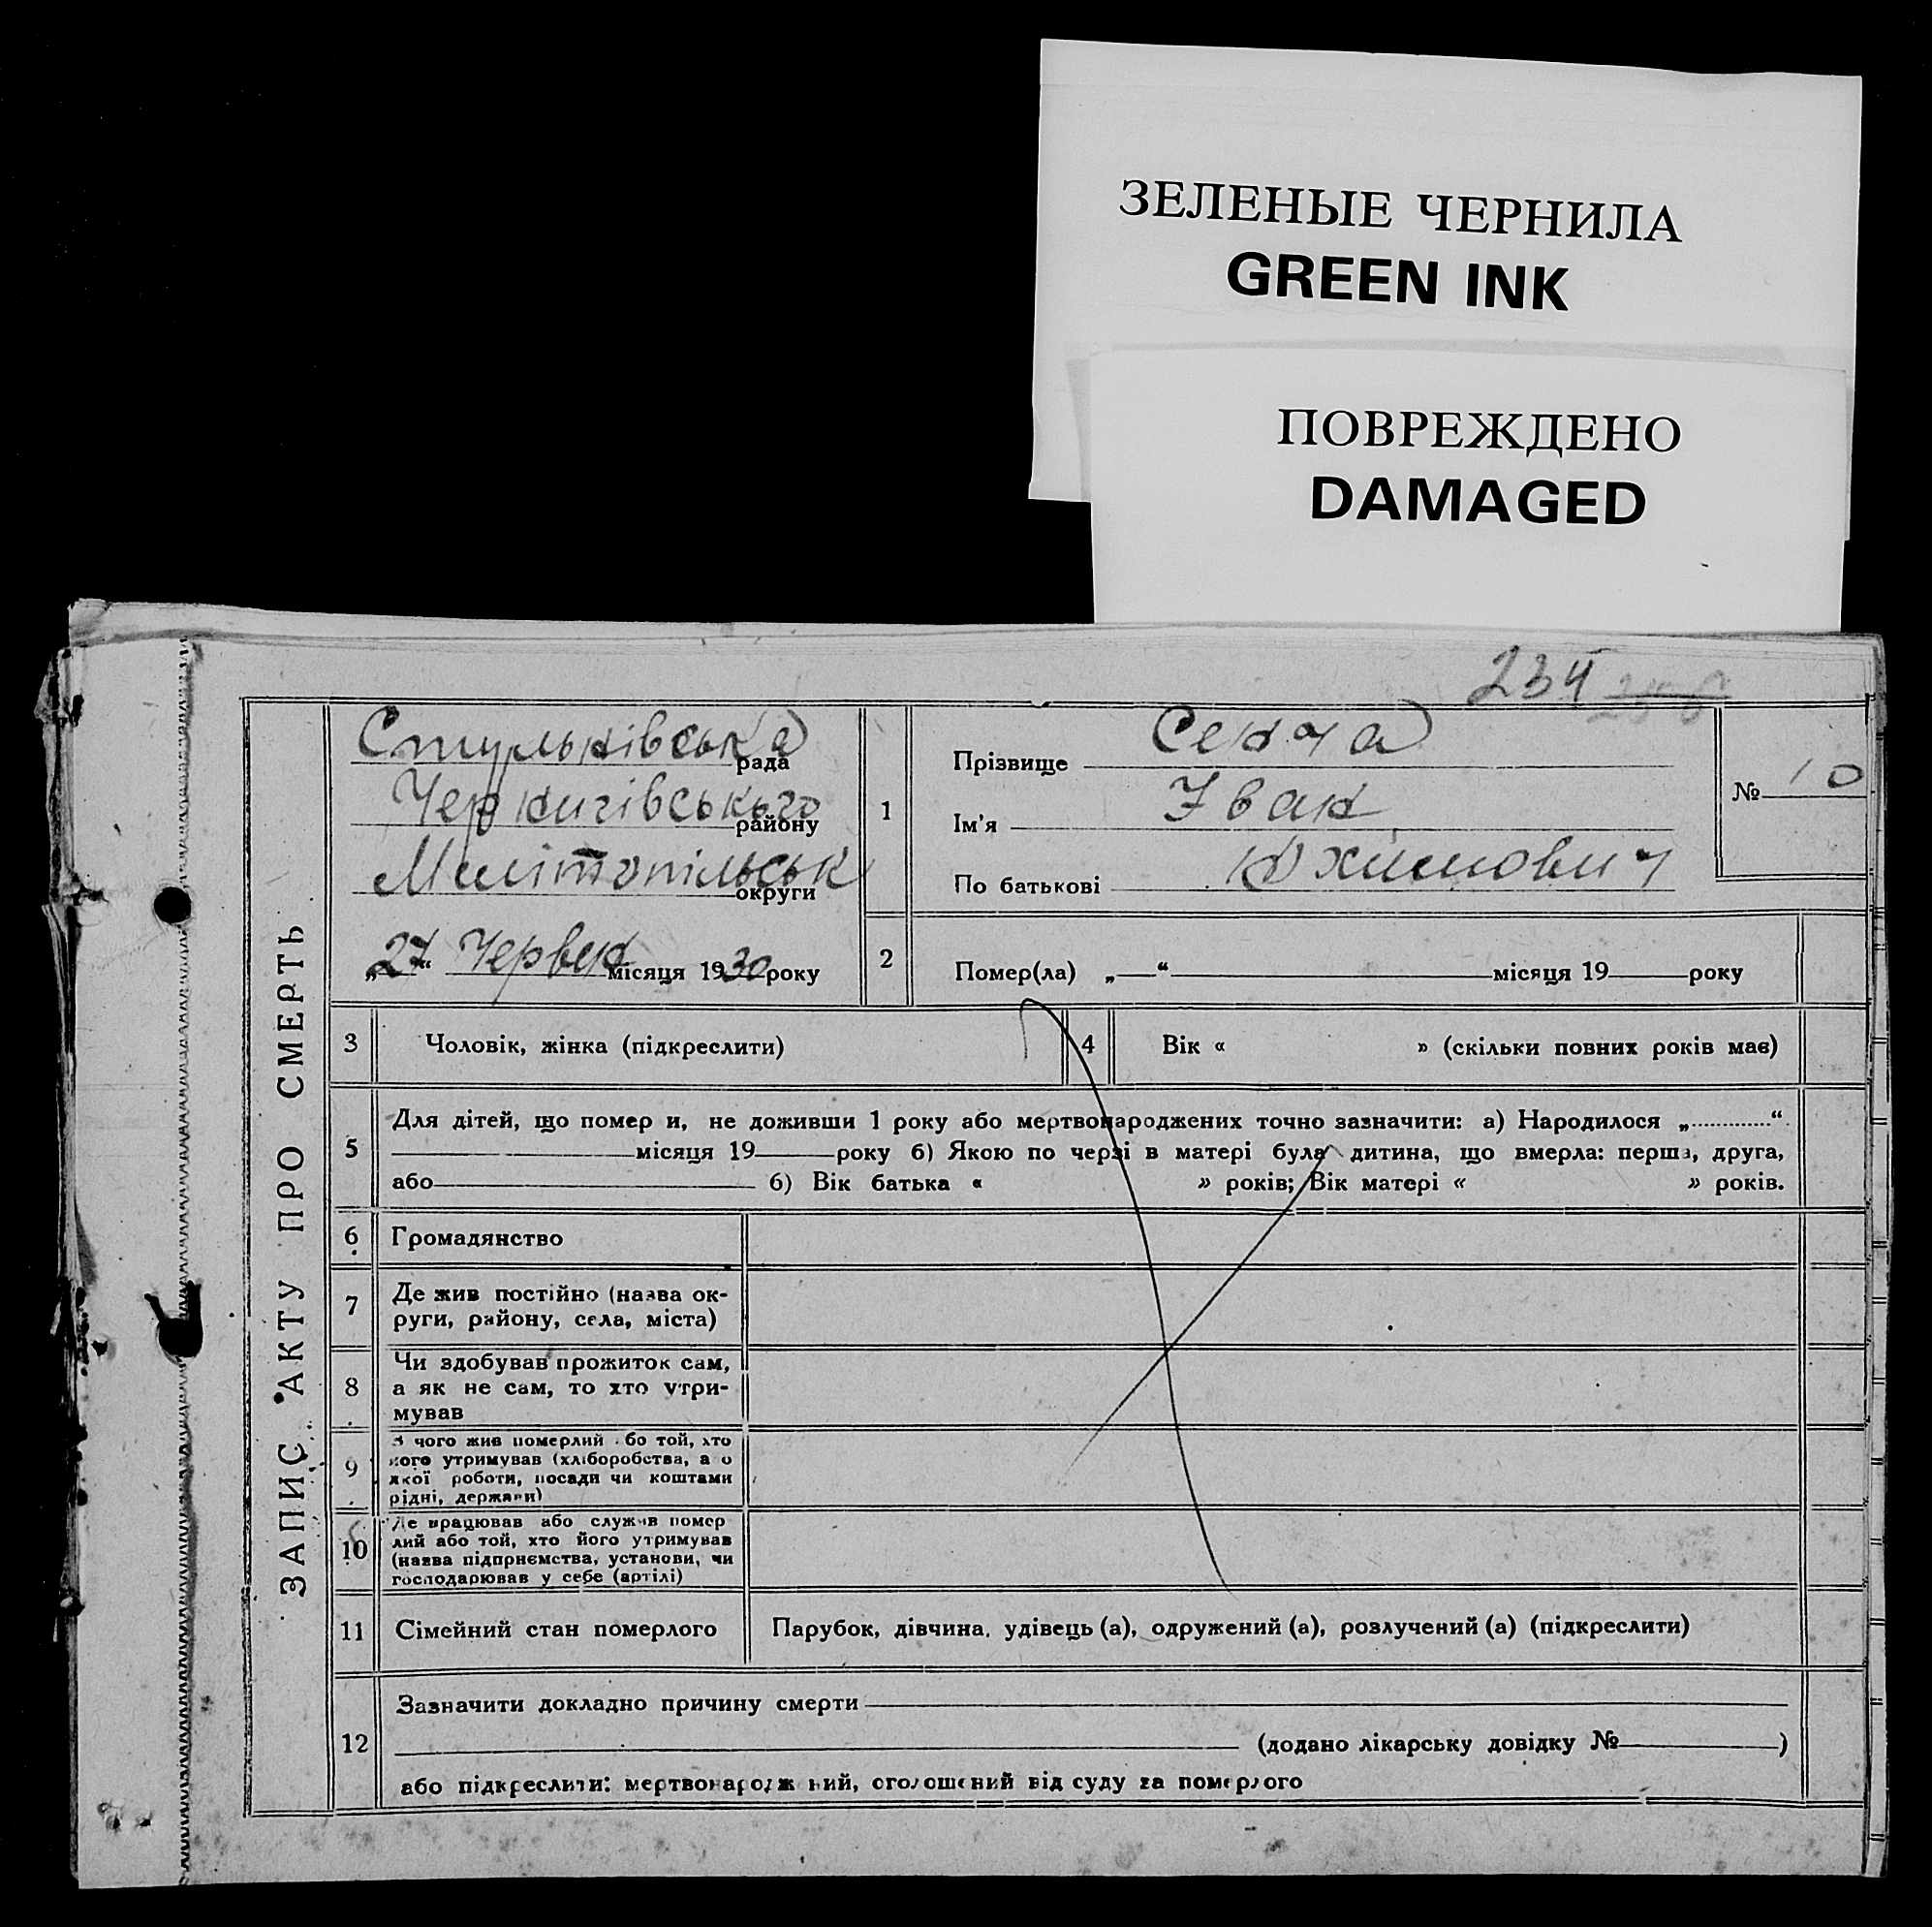 ЗЕЛЕНЫЕ ЧЕРНИЛА
GREEN INK
ПОВРЕЖДЕНО
DAMAGED
234
ЗАПИС АКТУ ПРО СМЕРТЬ
рада
району
округи
„27“ Червня місяця 1930 року
1
Прізвище
Ім'я Іван
По батькові
№ 10
2
Помер(ла) „ “ місяця 19 року
3
Чоловік, жінка (підкреслити)
4
Вік « » (скільки повних років має)
5
Для дітей, що помер и, не доживши 1 року або мертвонароджених точно зазначити: а) Народилося „ “
місяця 19 року б) Якою по черзі в матері була дитина, що вмерла: перша, друга,
або б) Вік батька « » років; Вік матері « » років.
6
Громадянство
7
Де жив постійно (назва ок-
руги, району, села, міста)
8
Чи здобував прожиток сам,
а як не сам, то хто утри-
мував
9
З чого жив померлий бо той, хто
кого утримував (хліборобства, а о
якої роботи, посади чи коштами
рідні, держави)
10
Де працював або служив помер
лий або той, хто його утримував
(назва підприємства, установи, чи
господарював у себе (артілі)
11
Сімейний стан померлого
Парубок, дівчина, удівець (а), одружений (а), розлучений (а) (підкреслити)
12
Зазначити докладно причину смерти
(додано лікарську довідку № )
або підкреслити: мертвонародж ний, оголошений від суду за померлого